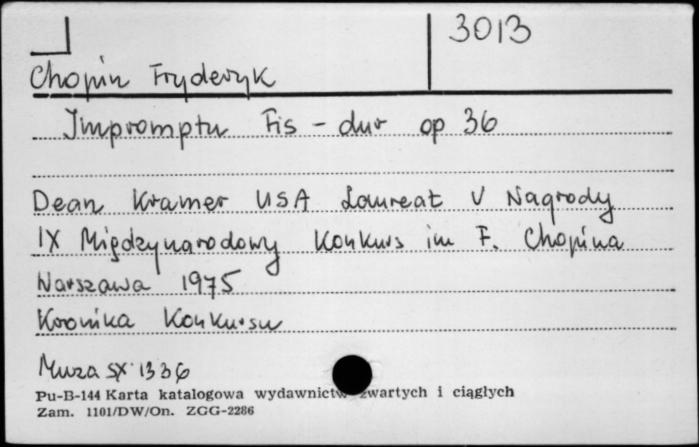 3013
Chopin Fryderyk
Impromptu Fis - dur op 36
Dean Kramer USA Laureat V Nagrody
IX Międzynarodowy Konkurs im F. Chopina
Warszawa 1975
Kronika Konkursu
Muza SX 1336
Pu-B-144 Karta katalogowa wydawnictw zwartych i ciągłych
Zam. 1101/DW/On. ZGG-2286